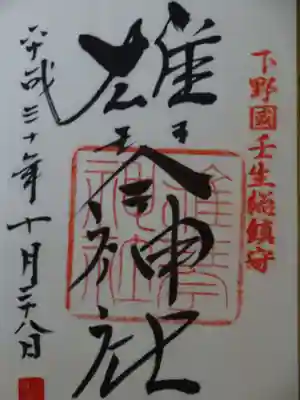 下野國壬生総鎮守
雄琴神社
雄琴
神社
平成三十年十月二十八日